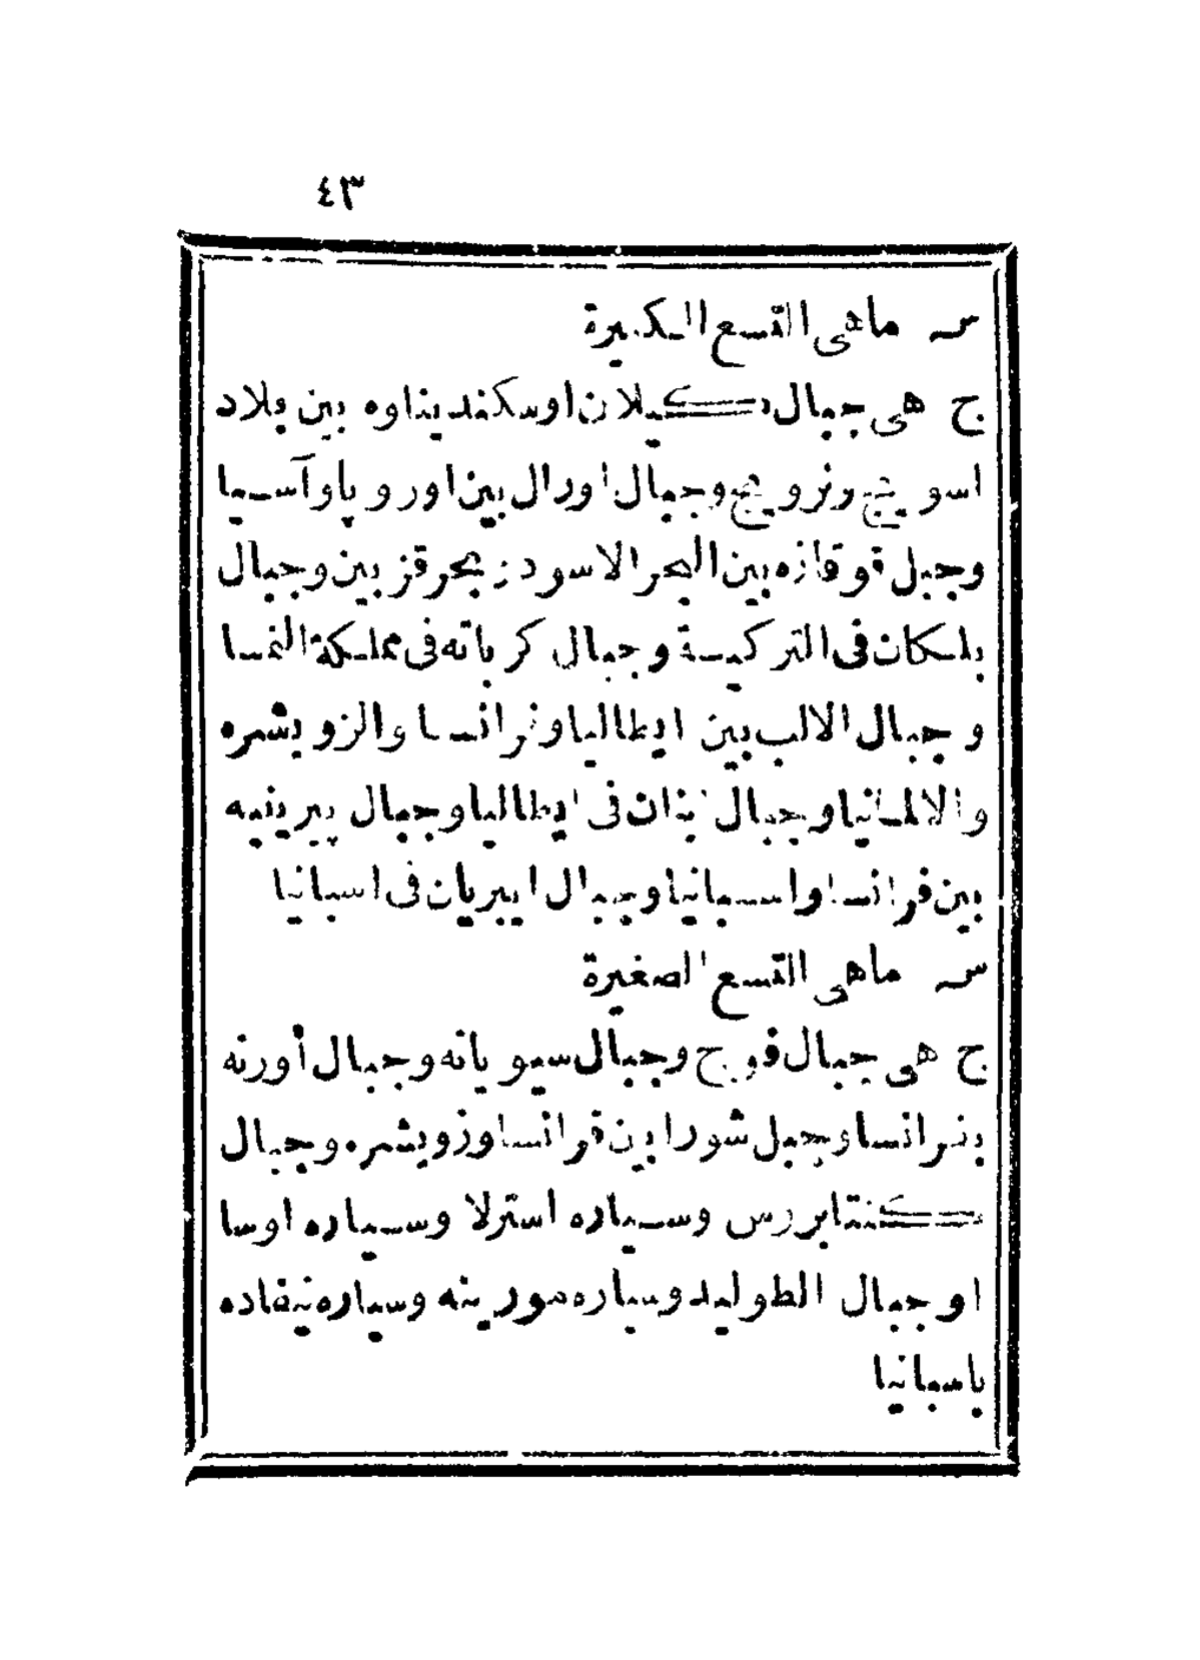 ٤٣
س ماهى التسع الكبيرة
ج هى جبال دكيلان اوسكنديناوه بين بلاد
اسويج ونرويج وجبال اورال بين اوروپا وآسيا
وجبل قوقازه بين البحر الاسود وبحر قزبين وجبال
بلكان فى التركية وجبال كرباته فى مملكة النمسا
وجبال الالب بين ايطاليا وفرانسا والزويشره
والالمانيا وجبال فى ايطاليا وجبال پيرينيه
بين فرانسا واسبانيا وجبال ايبريان فى اسبانيا
س ماهى التسع الصغيرة
ج هى جبال فوج وجبال سيويانه وجبال أورنه
بفرانسا وجبل شورا بين فرانسا وزويشره وجبال
كنتابررس وسياره استرلا وسياره اوسا
او جبال الطوليد وسياره مورينه وسياره نيفاده
باسبانيا